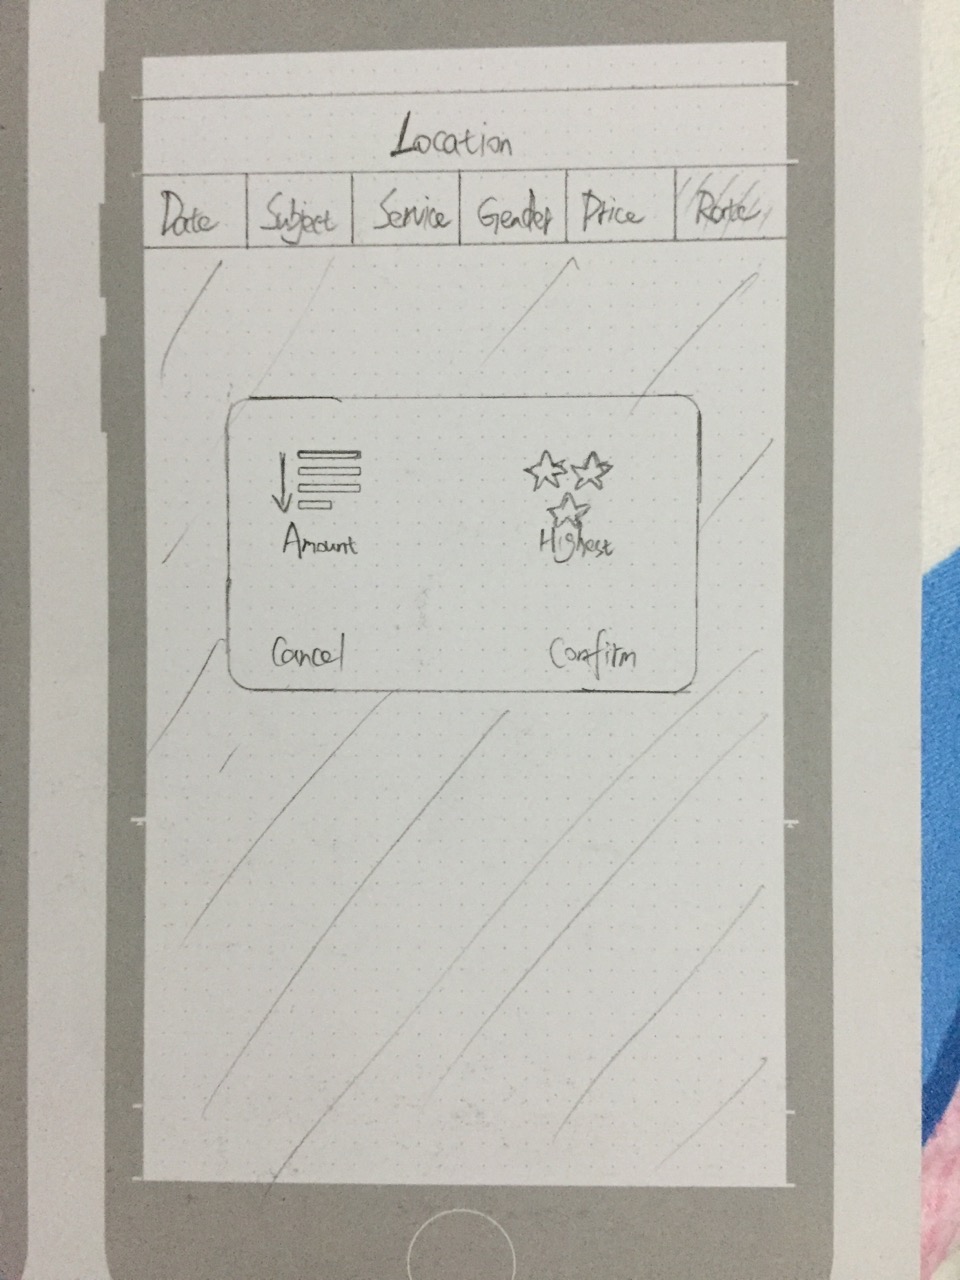 Location
Date Subject Service Gender Price Rate
Amount Highest
Cancel Confirm